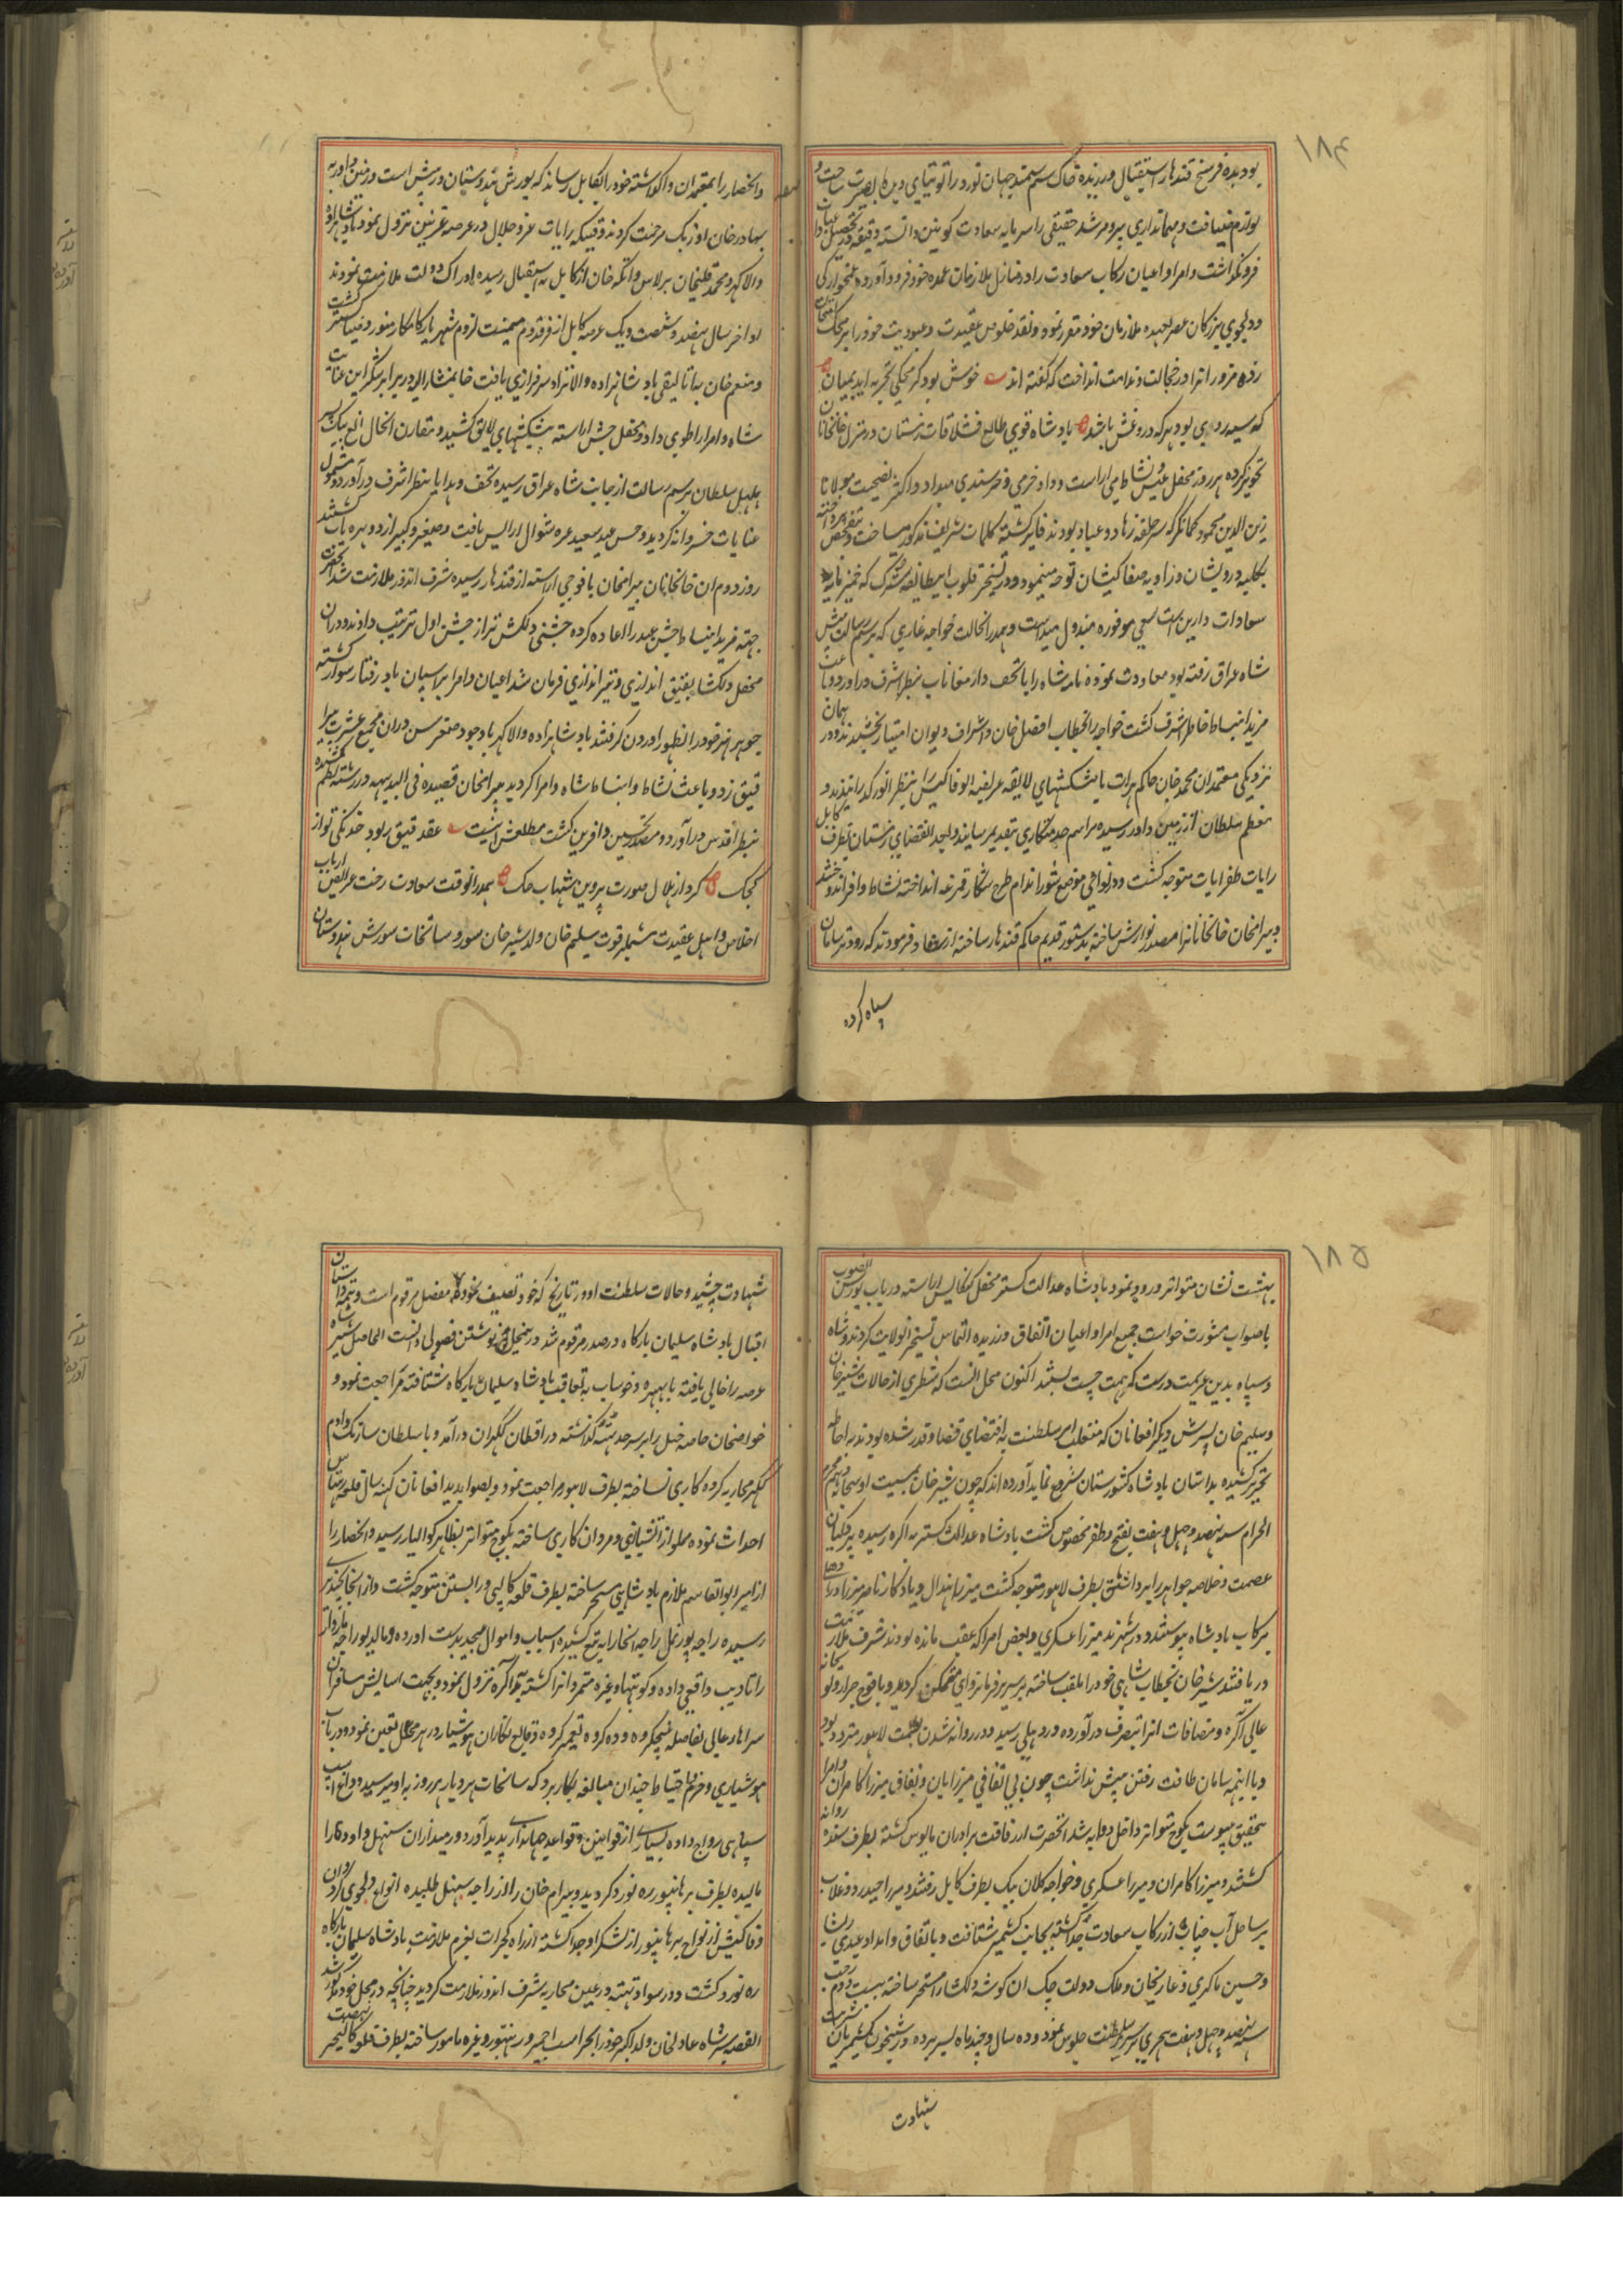 ۱۸۴
بود بده فرسخ قندهار استقبال ورزیده خاک سم سمند جهان نورد را توتیای دیده بصیرت ساخت و
لوازم ضیافت و مهمانداری پیر و مرشد حقیقی را سرمایه سعادت کونین دانسته دقیقه در تحصیل
فرونگذاشت و امرا و اعیان رکاب سعادت را در منازل ملازمان عمده خود فرود آورده غمخوارکی
و دلجویی بزرکان عصر بعهده ملازمان خود مقرر نمود و نقد خلوص عقیدت و عبودیت خود را بر محک امتحان
زده مزوران را در خجالت و ندامت انداخت که گفته اند خوش بود گر محک تجربه آید بمیان
که سیه روی بود هر که دروغش باشد بادشاه قوی طالع قشلاقات زمستان در منزل خانخانان
تجویز کرده هر روز محفل عیش و نشاط می اراست و داد خرمی و خرسندی میداد و اکثر بصحبت مولانا
زین الدین محمود کمانگر که سرحلقه زهاد و عباد بودند فایز گشته کلمات شریف مذکور میساخت
بکلبه درویشان و زاویه صفا کیشان توجه مینمود و در تسخیر قلوب این طایفه بزرگ که خمیرمایه
سعادات دارین است سعی موفوره مبذول میداشت و بهمدران حالت خواجه غازی که برسم رسالت پیش
شاه عراق رفته بود معاودت نموده نامه شاه را با تحف و ارمغانات بنظر اشرف دراورد و باعث
مزید انبساط خاطر اشرف گشت خواجه را بخطاب افضل خان و اشراف دیوان امتیاز بخشیدند و در همان
نزدیکی معتمدان محمد خان حاکم هرات با پیشکشهای لایقه عریضه الوفا کیش را بنظر انور گذرانیدند و
معظم سلطان از زمین داور رسیده مراسم خدمتکاری بتقدیم رسانید و بعد انقضای زمستان بطرف کابل
رایات ظفر ایات متوجه گشت و در نواحی موضع شوراندام طرح شکار قمرغه انداخته نشاط وافر اندوختند
و بیرامخان خانخانانرا مصدر نوازش ساخته بدستور قدیم حاکم قندهار ساخته ارشاد فرمودند که زودتر سامان
سپاه کرده
و انحصار را بمعتمدان واگذاشته خود را بکابل رساند که یورش هندوستان در پیش است و زمین داور به
بهادر خان اوزبک مرحمت کردند وقتیکه رایات عز و جلال در عرصه غزنین نزول نمود بادشاهزاده
والاگهر و محمد قلیخان برلاس و اتکه خان از کابل به استقبال رسیده ادراک دولت ملازمت نمودند
اواخر سال نهصد و شصت و یک عرصه کابل از فر قدوم میمنت لزوم شهریار کامکار منور و ضیاگستر گشت
و منعم خان بیتالیقی بادشاهزاده والانژاد سرفرازی یافت خان مشارالیه در برابر شکر این عنایت
شاه و امرا را طوی داد و محفل جشن اراسته پیشکشهای لایق کشید و مقارن الحال الغ بیک پسر
هلهل سلطان برسم رسالت از جانب شاه عراق رسیده تحف و هدایا بنظر اشرف درآورد و مشمول
عنایات خسروانه گردید و جشن عید سعید غره شوال ارایش یافت و صغیر و کبیر ازو بهره یاب گشتند
روز دوم ان خانخانان بیرامخان با فوجی اراسته از قندهار رسیده شرف اندوز ملازمت شد انحضرت
جهته مزید انبساط جشن عید را اعاده کرده جشنی دلکش تر از جشن اول ترتیب دادند و دران
محفل دلگشا بقیق اندازی و تیراندازی فرمان شد اعیان و امرا بر اسپان باد رفتار سوار گشته
جوهر هنر خود را بظهور اوردن گرفتند بادشاهزاده والاگهر باوجود صغر سن دران مجمع عشرت پیرا
قیق زد و باعث نشاط و انبساط شاه و امرا گردید بیرامخان قصیده فی البدیهه در رشته نظم کشیده
بنظر اقدس درآورد و مصدر تحسین و افرین گشت مطلعش اینست عقد قیق ربود خدنگ تو از
کجک کرد از هلال صورت پروین شهاب حک بهمدران وقت سعادت رخت عرایض ارباب
اخلاص و اهل عقیدت مشتمل بر فوت سلیم خان ولد شیر خان سور و سانحات شورش هندوستان
۱۸۵
بهشت نشان متواتر ورود نمود بادشاه عدالت گستر محفل کنکایش اراسته در باب یورش الصوب
باصواب مشورت خواست جمیع امرا و اعیان اتفاق ورزیده التماس تسخیر انولایت کردند و شاه
و سپاه بدین عزیمت درست کمر همت چست بستند اکنون محل انست که شطری از حالات شیر خان
و سلیم خان پسرش و دیگر افغانان که متغلب امر سلطنت به اقتضای قضا و قدر شده بودند به احاطه
تحریر کشیده بداستان بادشاه کشورستان شروع نماید آورده اند که چون شیر خان بمسیت او سبحانه دهم محرم
الحرام سنه نهصد و چهل و هفت بفتح و ظفر مخصوص گشت بادشاه عدالت گستر به اگره رسیده پردگیان
عصمت و خلاصه جواهر را برداشته بطرف لاهور متوجه گشت میرزا هندال و یادگار ناصر میرزا در راه
برکاب بادشاه پیوستند و در سهرند میرزا عسکری و بعض امرا که عقب مانده بودند شرف ملازمت
دریافتند شیر خان بخطاب شاهی خود را ملقب ساخته بر سریر فرمانروای متمکن گردید و با فوج جرار و لوا
عالی آگره و مضافات انرا بتصرف درآورده در دهلی رسید و در روانه شدن بطلمت لاهور متردد بود
و با اینهمه سامان طاقت رفتن پیش نداشت چون بی اتفاقی میرزایان و نفاق میرزا کامران و امرا
بتحقیق پیوست بکوچ متواتر داخل دوابه شد انحضرت از رفاقت برادران مایوس گشته بطرف سند روانه
گشتند و میرزا کامران و میرزا عسکری و خواجه کلان بیک بطرف کابل رفتند و میرزا حیدر دوغلات
بر ساحل آب چناب از رکاب سعادت جدا گشته بجانب کشمیر شتافت و باتفاق و امداد عیدی رینا
و حسین ماکری و غازیخان و ملک دولت چک ان گوشه دلگشا را مسخر ساخته بیست و دوم رجب
سنه نهصد و چهل و هفت هجری بر سریر سلطنت جلوس نمود و ده سال و چند ماه بسر برده در شبخون کشمیریان شربت
شهادت
شهادت چشید و حالات سلطنت او در تاریخ که خود تصنیف نموده مفصل مرقوم است و تتمه داستان
اقبال بادشاه سلیمان بارگاه در صدر مرقوم شد درینمحل نوشتن فضولی دانست الحاصل شیر شاه
عرصه را خالی یافته تا بهیره و خوشاب به تعاقب بادشاه سلیمان بارگاه شتافته مراجعت نمود و
خواصخان خاصه خیل را بر سرحد تته گذاشته در اقطان گکران درآمد و با سلطان سارنگ و ادم
گکر محاربه کرده کاری نساخته بطرف لاهور مراجعت نمود و بصوابدید افغانان کهنه سال قلعه رهتاس
احداث نموده مملو از آتشبازی و مردان کاری ساخته بکوچ متواتر بظاهر گوالیار رسید و انحصار را
از امیر ابوالقاسم ملازم بادشاهی مسخر ساخته بطرف قلعه کالپی و رایسین متوجه گشت و از انجا بچندیری
رسیده راجه پورنمل راجه انجا را به تیغ کشیده اسباب و اموال بیحد بدست اورده و مالدیو راجه مارواڑ
را تادیب واقعی داده و کوتهها وغیره متمردانرا کشته به اگره نزول نمود و بجهت اسایش مسافران
سراهاء عالی بفاصله پنجکروه و ده کروه تعمیر کرده وقایع نگاران هوشیار در هر محل تعین نمود و در باب
هوشیاری و حزم و احتیاط چندان مبالغه بکار برد که سانحات هر دیار هر روز به او میرسید و داغ اسپ
سپاهی رواج داده بسیاری از قوانین و قواعد جهانداری پدید آورد و زمینداران سنبهل و اودگار را
مالیده بطرف برهانپور ره نورد گردید و بیرام خان را از راجه سنبهل طلبیده انواع دلجویی کرد و ان
وفاکیش از نواح برهانپور از لشکر او جدا گشته از راه گجرات بعزم ملازمت بادشاه سلیمان بارگاه
ره نورد گشت و در سواد تته در عین محاربه شرف اندوز ملازمت گردید چنانچه در محل خود گذارش شد
القصه شیر شاه عادل خان ولد اکبر خود را بحراست اجمیر و رنتهنبور وغیره مامور ساخته بطرف قلعه کالینجر نهضت